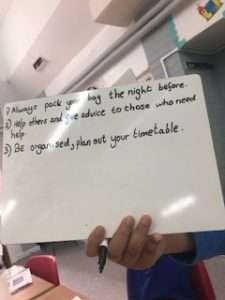 1) Always pack your bag the night before.
2) Help others and give advice to those who need
help.
3) Be organised, plan out your timetable.